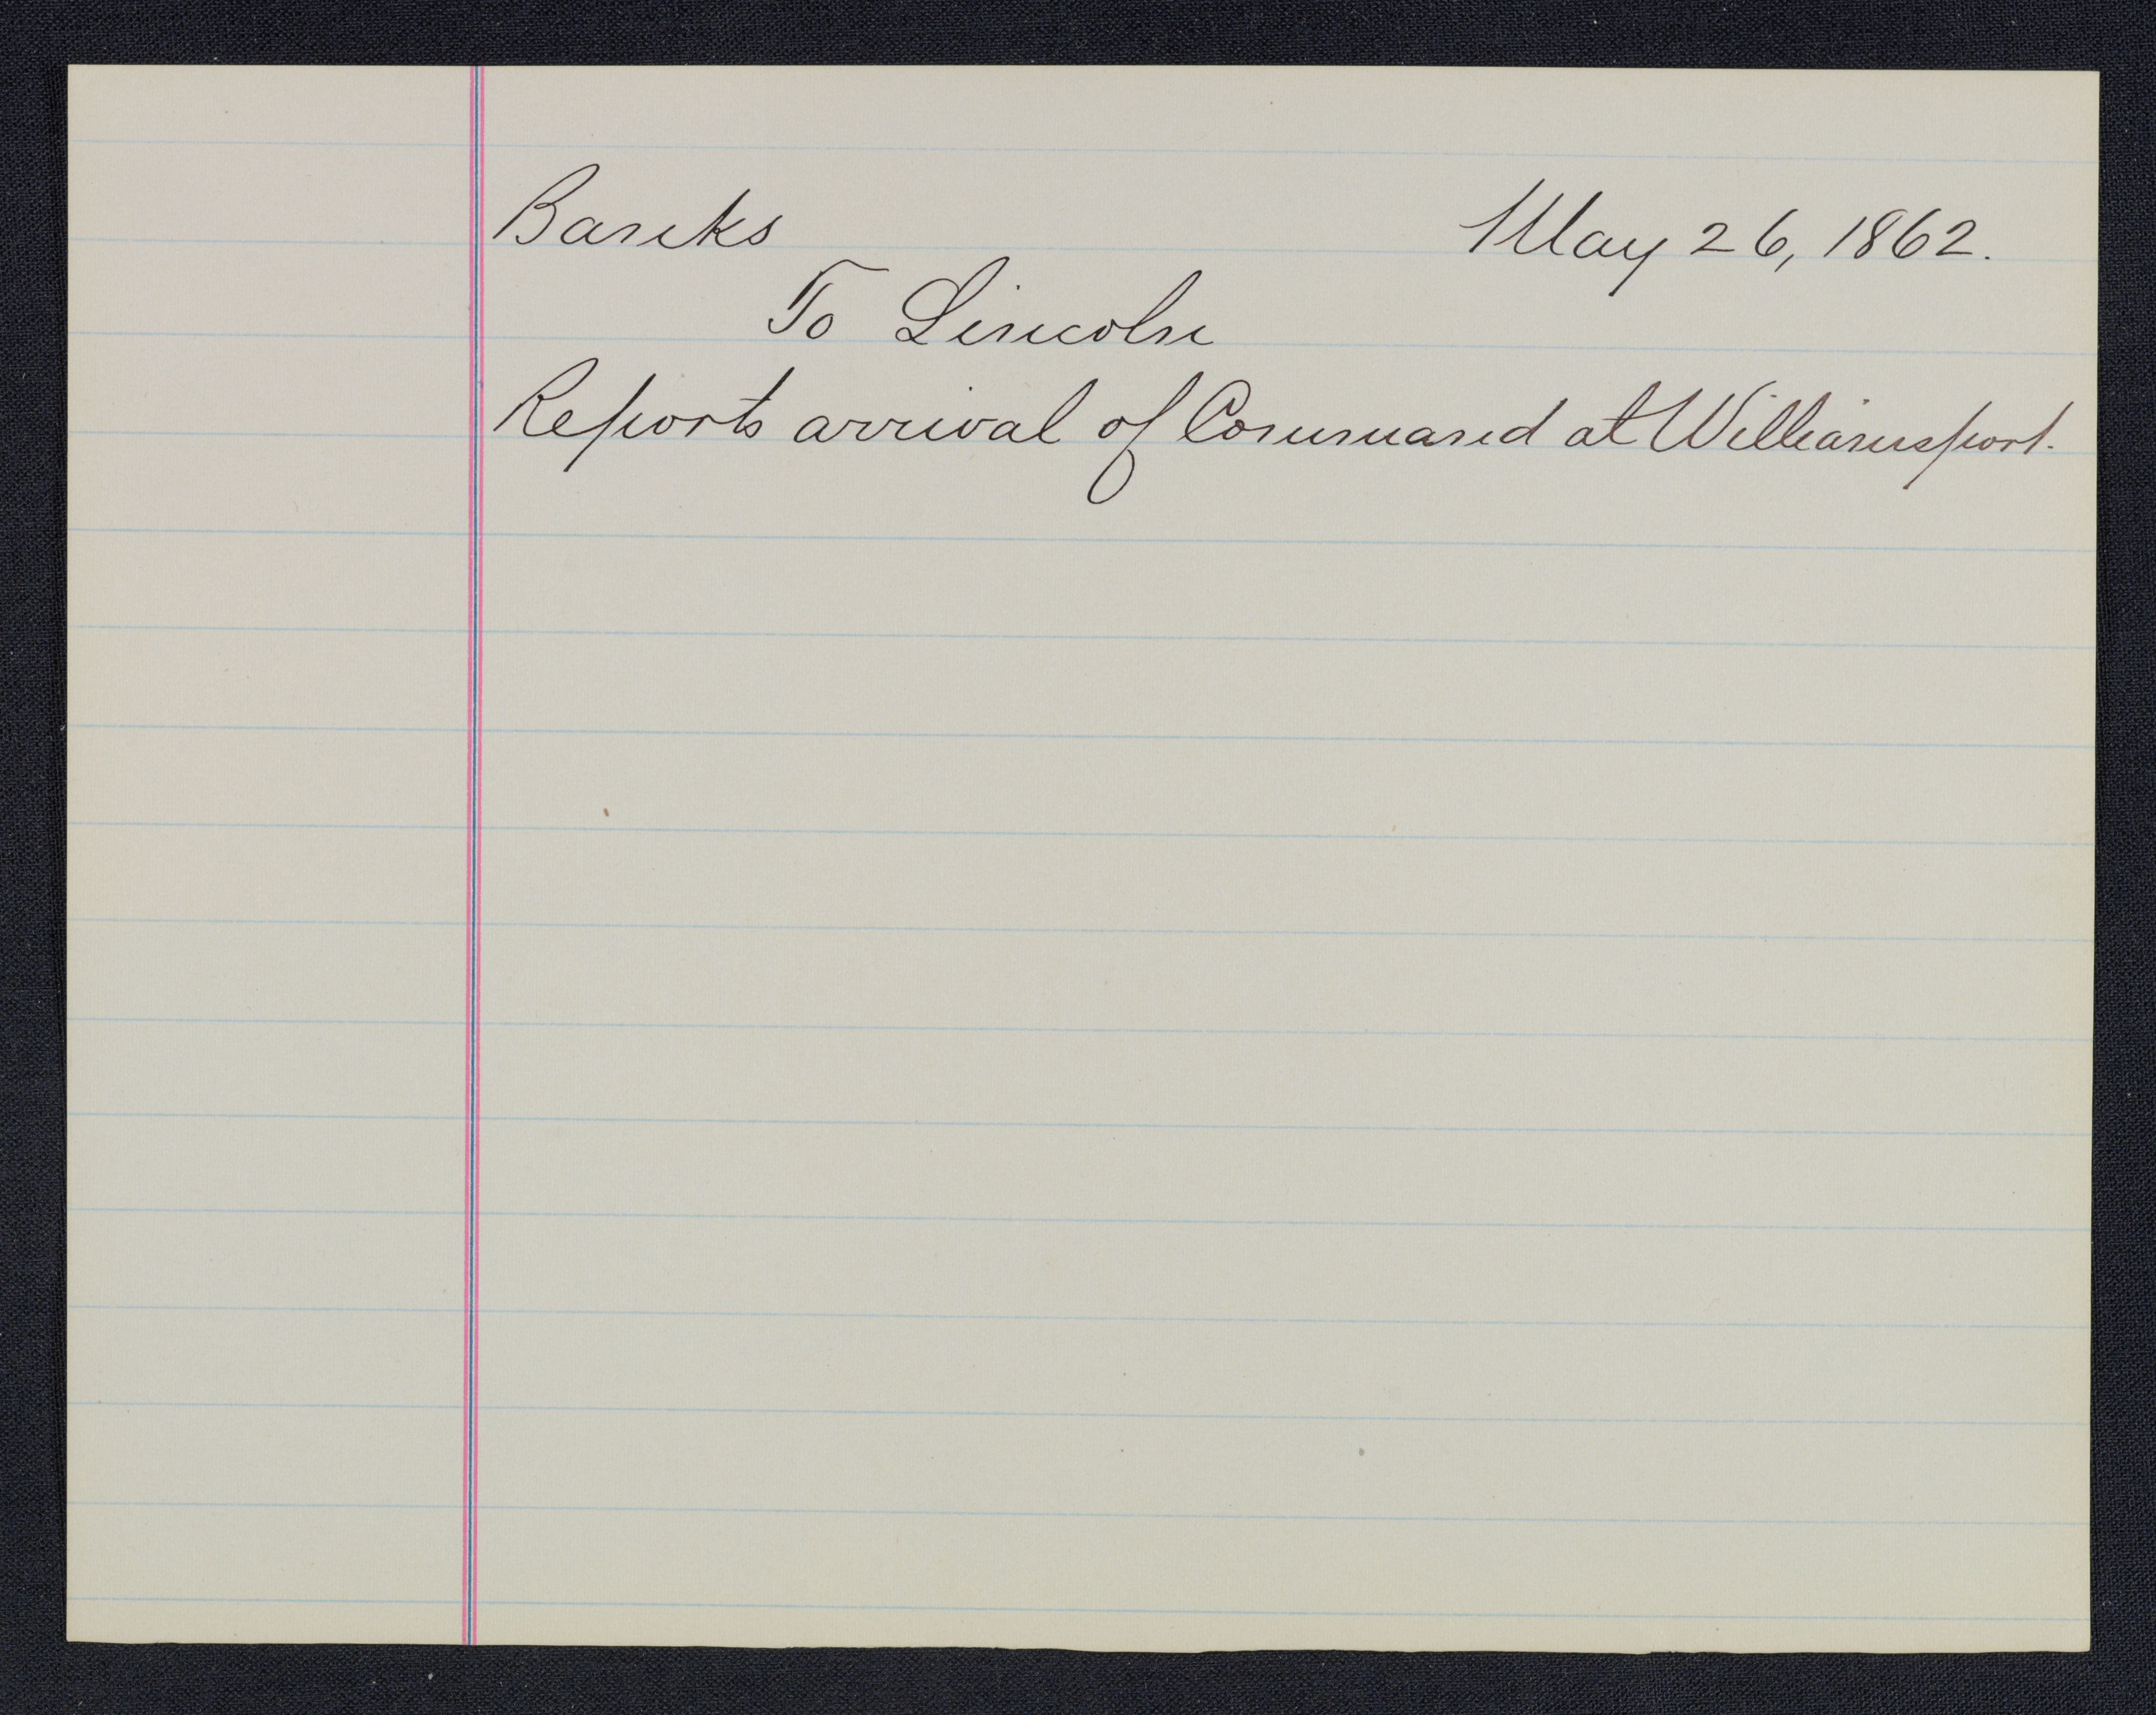 Banks May 26, 1862.
To Lincoln
Reports arrival of Command at Williamsport.